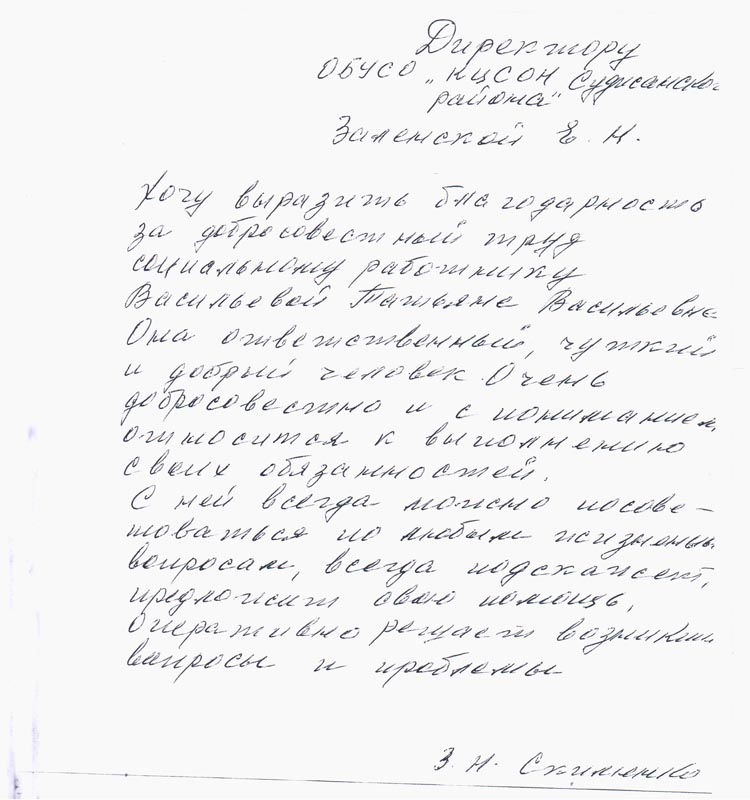 Директору
ОБУСО „КЦСОН Суджанско
района"
Заленской Е. Н.
Хочу выразить благодарность
за добросовестный труд
социальному работнику
Васильевой Татьяне Васильевне
Она ответственный, чуткий
и добрый человек. Очень
добросовестно и с пониманием
относится к выполнению
своих обязанностей.
С ней всегда можно посове-
товаться по любым жизненны
вопросам, всегда подскажет,
предложит свою помощь,
Оперативно решает возникши
вопросы и проблемы
З. Н.